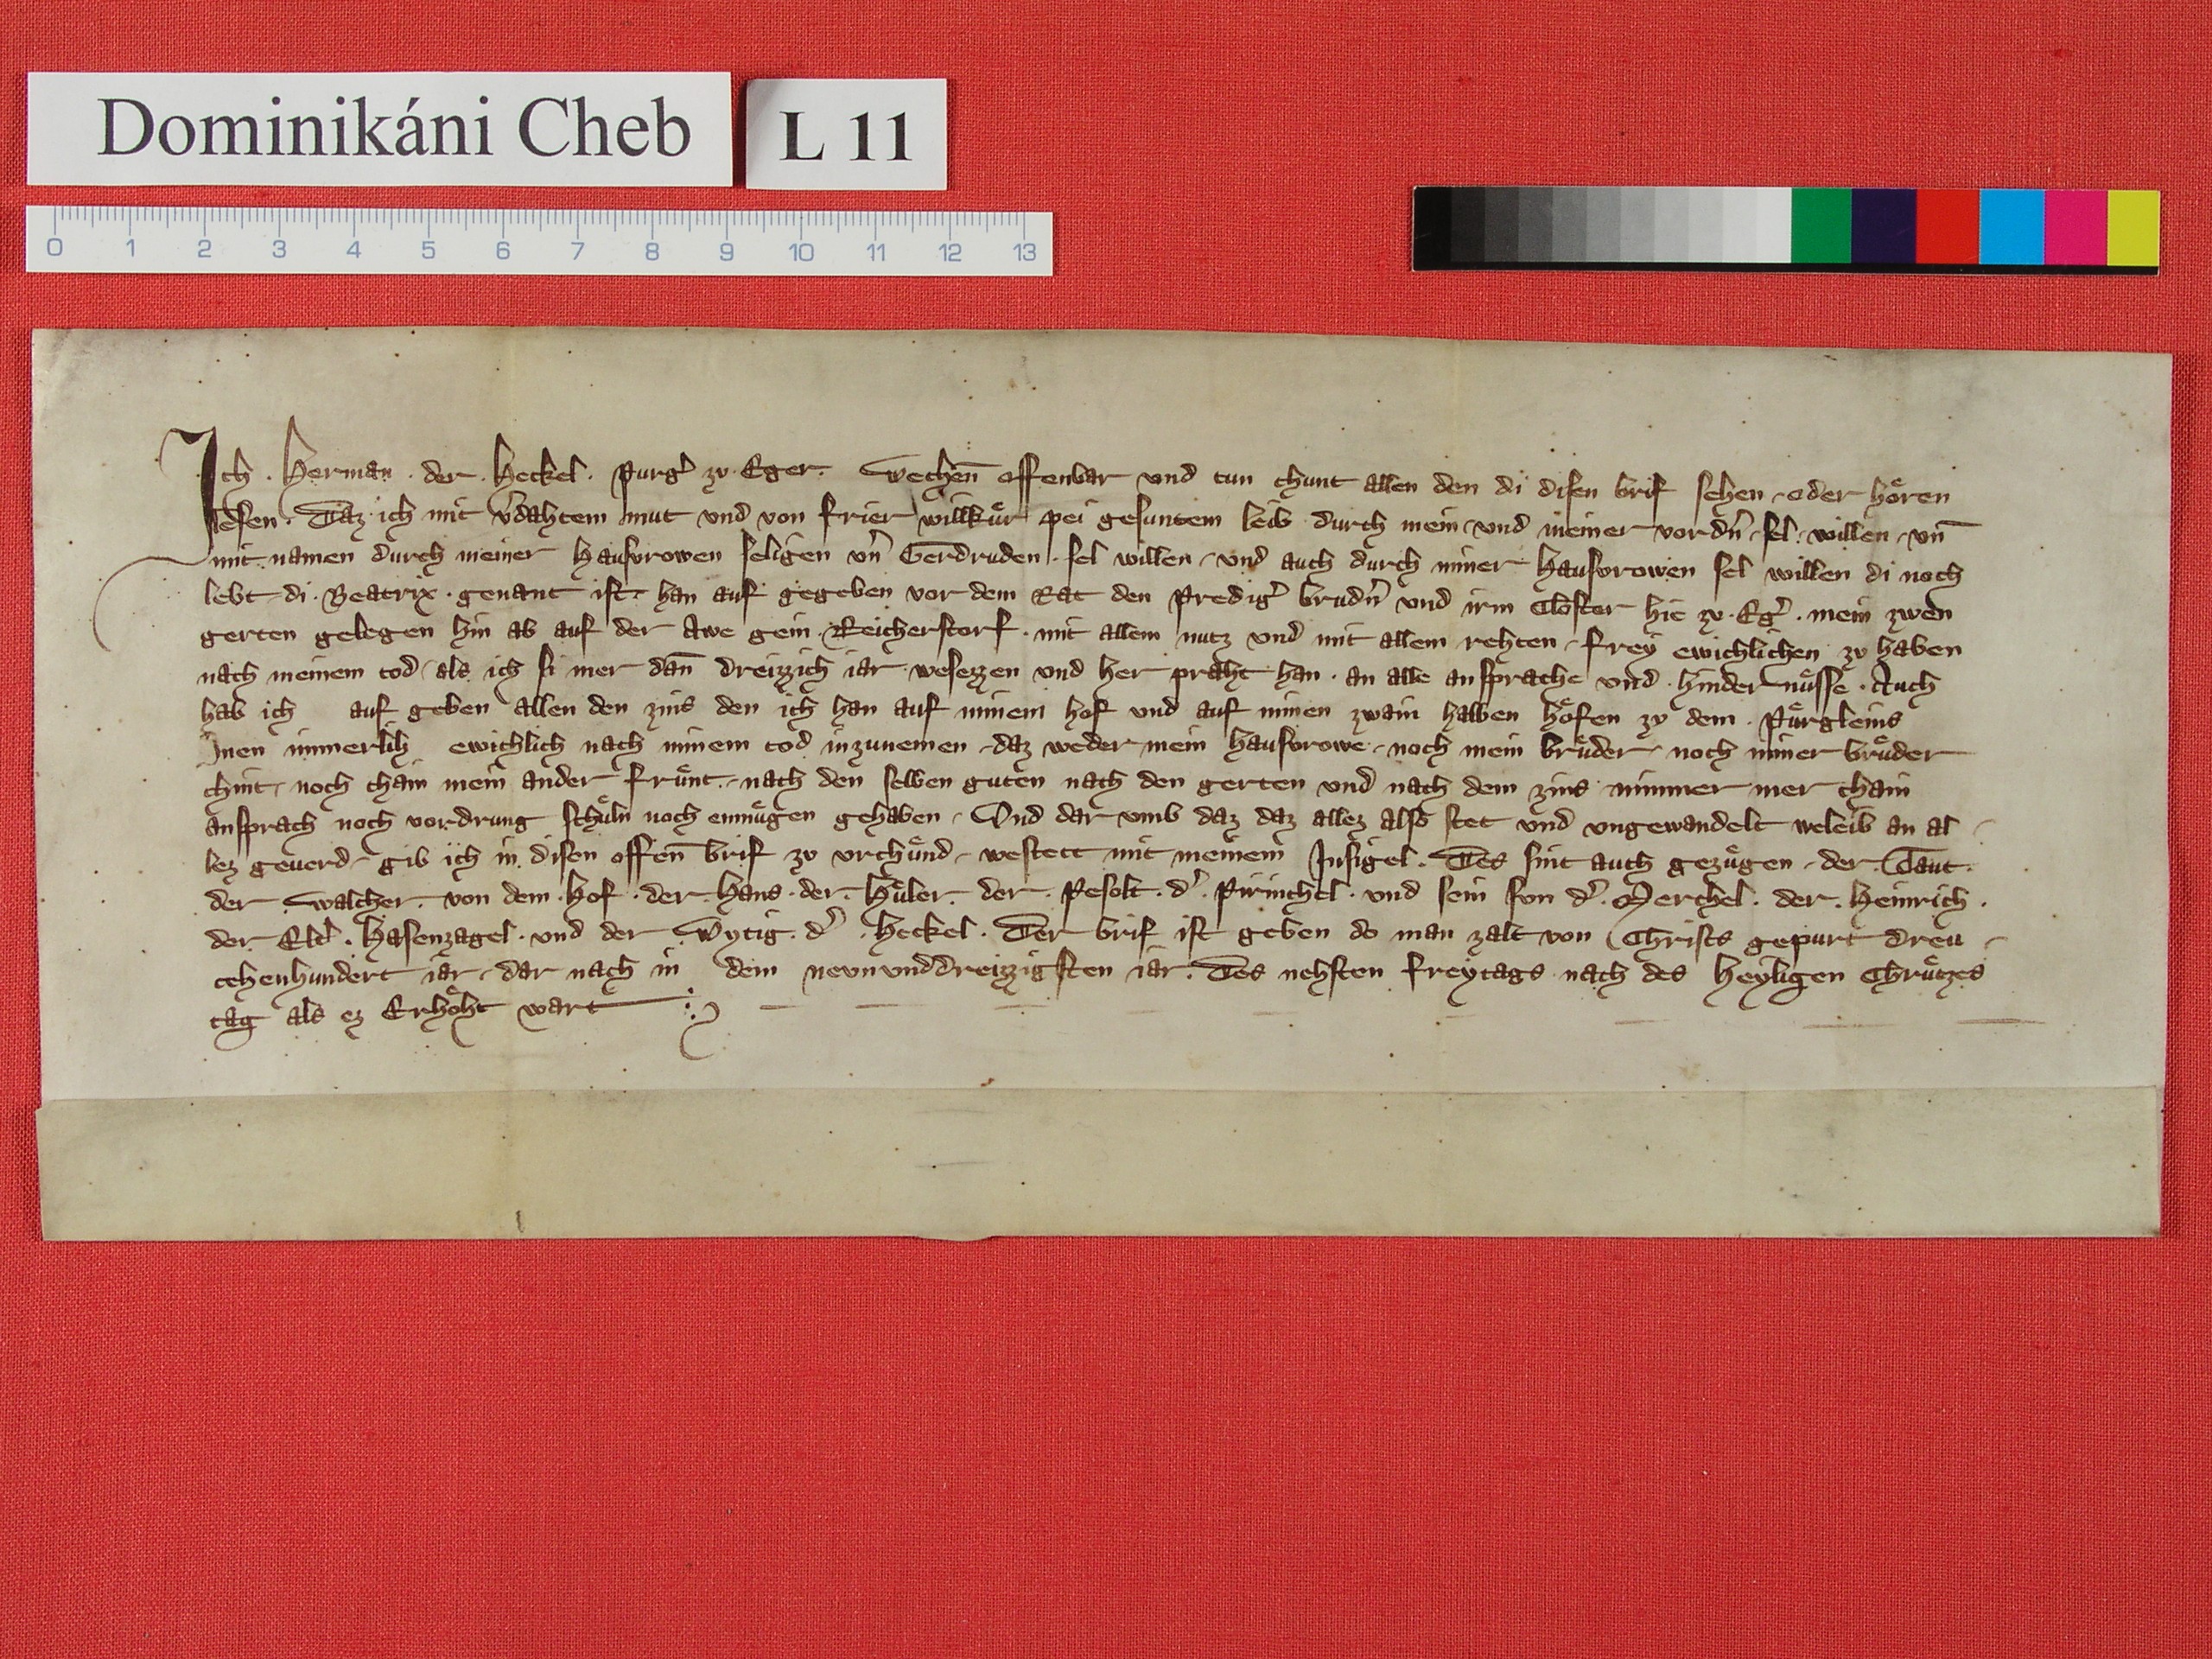 Dominikáni Cheb
L 11
0 1 2 3 4 5 6 7 8 9 10 11 12 13
Ich · Herman · der · Heckel · Purg͛ zv · Eger · wechen̄ offenbar vnd tun chunt allen den di disen brif sehen · oder hoͤren
lesen · Daz ich mit v̓dahtem mut vnd von frier willkuͤr pei gesuntem leib durch mein · vnd meiner vordn̓ · sel · willen · vn̄
mit namen durch meiner Hausvrowen seligen vn̓ Gerdruden · sel willen · vnd auch durch miner Hausvrowen sel willen di noch
lebt · di · Beatrix · genant ist · han auf gegeben vor dem Rat den Predig͛ brudn̓ vnd irm Closter hie zv · Eg͛ · mein zwen
gerten gelegen hin ab auf der Awe gein · Reicherstorf · mit allem nutz vnd mit allem rehten · frey ewichlichen zv haben
nach meinem tod · als ich si mer dan̄ dreizzich iar wesezzen vnd her praht han · an alle ansprache vnd · hindernuͤsse · Auch
hab ich auf geben allen den zins den ich han auf minem hof vnd auf minen zwain halben hoͤfen zv dem · Puͤrgleins
Inen immerlih ewichlich nach minem tod inzunemen · daz weder mein hausvrowe · noch mein bruͤder · noch miner bruͤder
chint · noch chain mein ander fruͤnt · nach den selben guten nach den gerten vnd nach dem zins nimmer mer chain
ansprach noch vordrung schuͤln noch enmuͤgen gehaben · Vnd dar vmb daz daz allez also stet vnd vngewandelt weleib an al -
lez geuerd · gib ich in disen offen̄ brif zv vrchuͤnd · westett mit meinem Insigel · Des sint auch gezuͤgen · der · Taut ·
der walcher · von dem · Hof · der · Hans · der · Huͤler · der · Pesolt · d͛ · Pirinchel · vnd sein sun d͛ · Merchel · der · Heinrich ·
der · Eld͛ · Hasenzagel · vnd der Wytig · d͛ · Heckel · Der brif ist geben do man zalt von Christs gepurt dreu -
cehenhundert iar · dar nach in dem nevnvnddreizzigsten iar · Des nehsten freytags nach des heyligen Chruͤtzes
tag als ez Erhoͤht wart